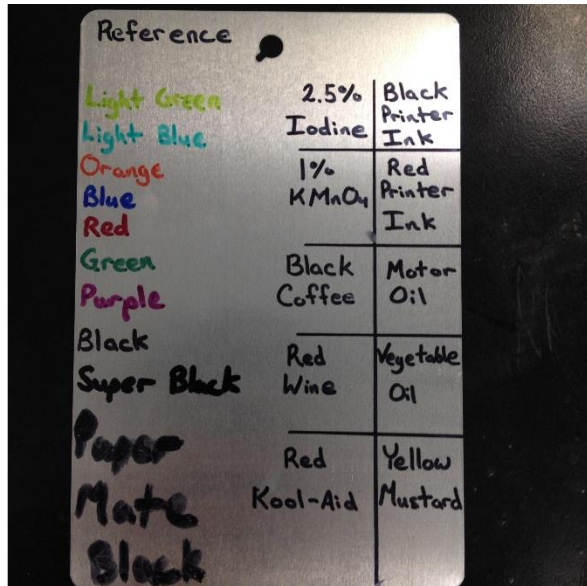 Reference
Light Green
Light Blue
Orange
Blue
Red
Green
Purple
Black
Super Black
Paper
Mate
Black
2.5%
Iodine
Black
Printer
Ink
1%
KMnO4
Red
Printer
Ink
Black
Coffee
Motor
Oil
Red
Wine
Vegetable
Oil
Red
Kool-Aid
Yellow
Mustard